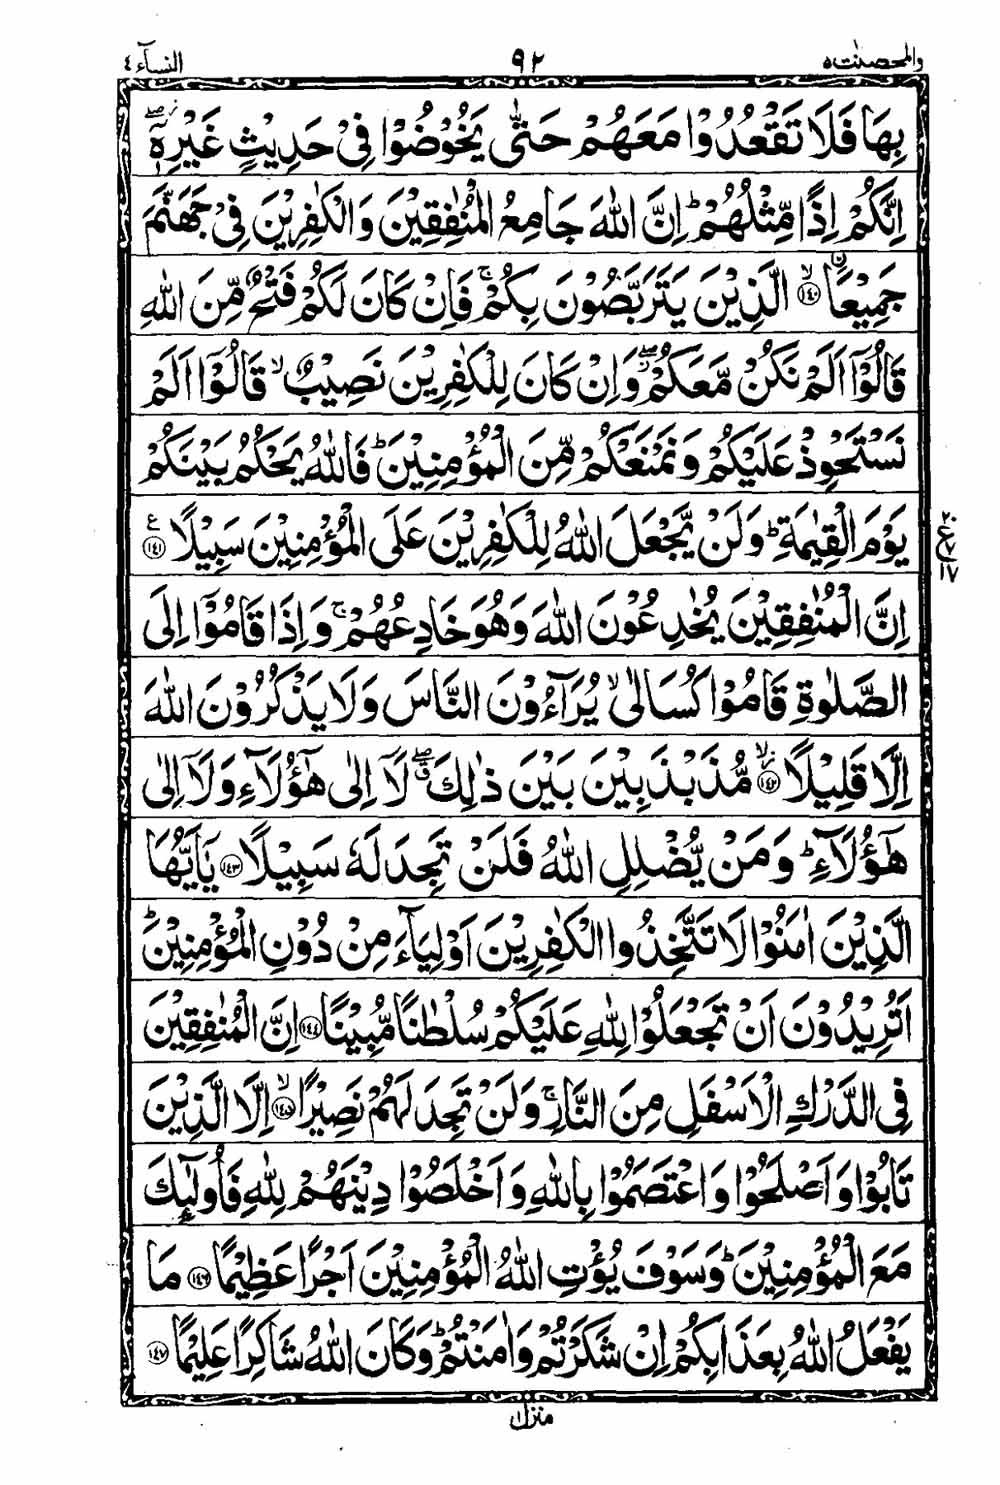 والمحصنٰت ٥ ٩٢ النسآء ٤
بِهَا فَلَا تَقْعُدُوْا مَعَهُمْ حَتّٰى يَخُوْضُوْا فِيْ حَدِيْثٍ غَيْرِهٖٓ ۖ
اِنَّكُمْ اِذًا مِّثْلُهُمْ ؕ اِنَّ اللّٰهَ جَامِعُ الْمُنٰفِقِيْنَ وَالْكٰفِرِيْنَ فِيْ جَهَنَّمَ
جَمِيْعًا ۙ‏﴿١٤٠﴾ الَّذِيْنَ يَتَرَبَّصُوْنَ بِكُمْ ۚ فَاِنْ كَانَ لَكُمْ فَتْحٌ مِّنَ اللّٰهِ
قَالُوْٓا اَلَمْ نَكُنْ مَّعَكُمْ ۖ وَاِنْ كَانَ لِلْكٰفِرِيْنَ نَصِيْبٌ ۙ قَالُوْٓا اَلَمْ
نَسْتَحْوِذْ عَلَيْكُمْ وَنَمْنَعْكُمْ مِّنَ الْمُؤْمِنِيْنَ ؕ فَاللّٰهُ يَحْكُمُ بَيْنَكُمْ
يَوْمَ الْقِيٰمَةِ ؕ وَلَنْ يَّجْعَلَ اللّٰهُ لِلْكٰفِرِيْنَ عَلَى الْمُؤْمِنِيْنَ سَبِيْلًا ﴿١٤١﴾ ع
اِنَّ الْمُنٰفِقِيْنَ يُخٰدِعُوْنَ اللّٰهَ وَهُوَ خَادِعُهُمْ ۚ وَاِذَا قَامُوْٓا اِلَى
الصَّلٰوةِ قَامُوْا كُسَالٰى ۙ يُرَآءُوْنَ النَّاسَ وَلَا يَذْكُرُوْنَ اللّٰهَ
اِلَّا قَلِيْلًا ۙ ﴿١٤٢﴾ مُّذَبْذَبِيْنَ بَيْنَ ذٰلِكَ ۖ لَآ اِلٰى هٰٓؤُلَآءِ وَلَآ اِلٰى
هٰٓؤُلَآءِ ؕ وَمَنْ يُّضْلِلِ اللّٰهُ فَلَنْ تَجِدَ لَهٗ سَبِيْلًا ﴿١٤٣﴾ يٰٓاَيُّهَا
الَّذِيْنَ اٰمَنُوْا لَا تَتَّخِذُوا الْكٰفِرِيْنَ اَوْلِيَآءَ مِنْ دُوْنِ الْمُؤْمِنِيْنَ ؕ
اَتُرِيْدُوْنَ اَنْ تَجْعَلُوْا لِلّٰهِ عَلَيْكُمْ سُلْطٰنًا مُّبِيْنًا ﴿١٤٤﴾ اِنَّ الْمُنٰفِقِيْنَ
فِى الدَّرْكِ الْاَسْفَلِ مِنَ النَّارِ ۚ وَلَنْ تَجِدَ لَهُمْ نَصِيْرًا ۙ ﴿١٤٥﴾ اِلَّا الَّذِيْنَ
تَابُوْا وَاَصْلَحُوْا وَاعْتَصَمُوْا بِاللّٰهِ وَاَخْلَصُوْا دِيْنَهُمْ لِلّٰهِ فَاُولٰٓئِكَ
مَعَ الْمُؤْمِنِيْنَ ؕ وَسَوْفَ يُؤْتِ اللّٰهُ الْمُؤْمِنِيْنَ اَجْرًا عَظِيْمًا ﴿١٤٦﴾ مَا
يَفْعَلُ اللّٰهُ بِعَذَابِكُمْ اِنْ شَكَرْتُمْ وَاٰمَنْتُمْ ؕ وَكَانَ اللّٰهُ شَاكِرًا عَلِيْمًا ﴿١٤٧﴾
٢٠
ع ٧
١٧
منزل ١